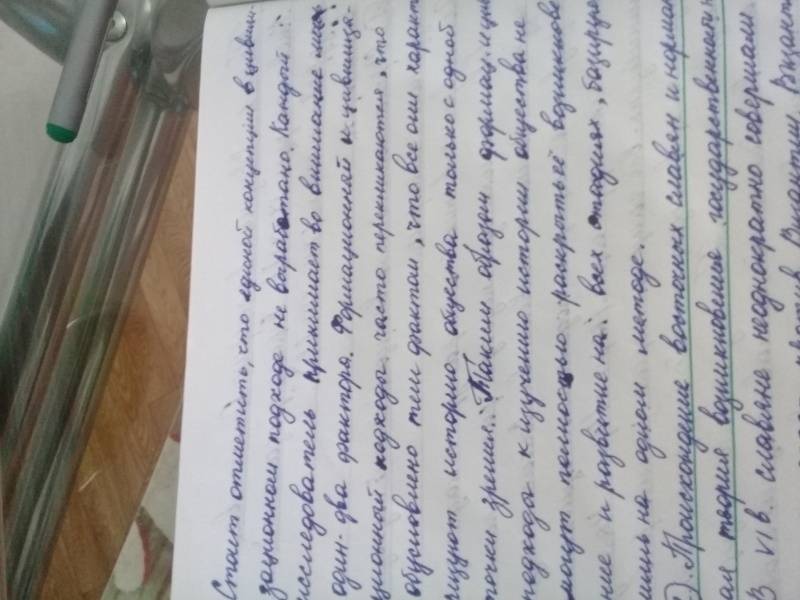 Стоит отметить, что единой концепции в цивили-
зационном подходе не выработано. Каждый
исследователь принимает во внимание лишь
один-два фактора. Формационный и цивилиза-
ционный подходы часто перекликаются, что
обусловлено тем фактом, что все они характ
ризуют историю общества только с одной
точки зрения. Таким образом формац. и цив
подходы к изучению истории общества не
могут полностью раскрыть её возникнове
ние и развитие на всех стадиях, базируя
лишь на одном методе.
Происхождение восточных славян и норман
ая теория возникновения государственности
В VI в. славяне неоднократно совершали
против Византии. Визант